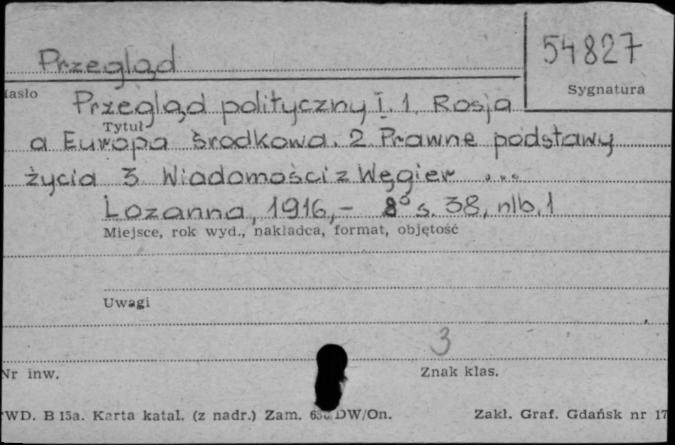 Przegląd
54827
Hasło
Sygnatura
Przegląd polityczny I. 1. Rosja
Tytuł
a Europa środkowa. 2. Prawne podstawy
życia 3 Wiadomości z Węgier ...
Lozanna, 1916,- 8° s. 38, nlb. 1
Miejsce, rok wyd., nakładca, format, objętość
Uwagi
3
Nr inw.
Znak klas.
PWD. B 15a. Karta katal. (z nadr.) Zam. DW/On.
Zakł. Graf. Gdańsk nr 17